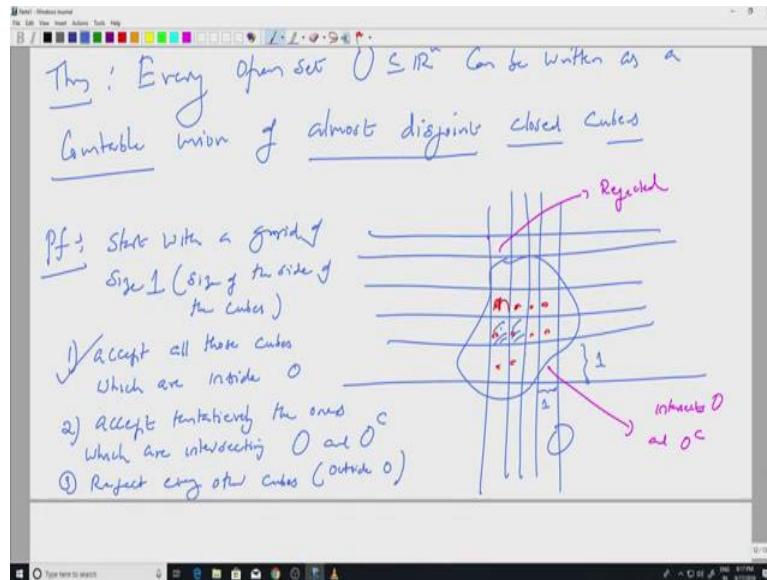 Note1 - Windows Journal
File Edit View Insert Actions Tools Help
Thm : Every open set O ⊆ ℝⁿ can be written as a
Countable union of almost disjoint closed cubes
Rejected
Pf : Start with a grid of
size 1 (size of the side of
the cubes)
1) accept all those cubes
which are inside O
2) accept tentatively the ones
which are intersecting O and Oᶜ
③ Reject every other cubes (outside O)
1
1
O
intersects O
and Oᶜ
Type here to search